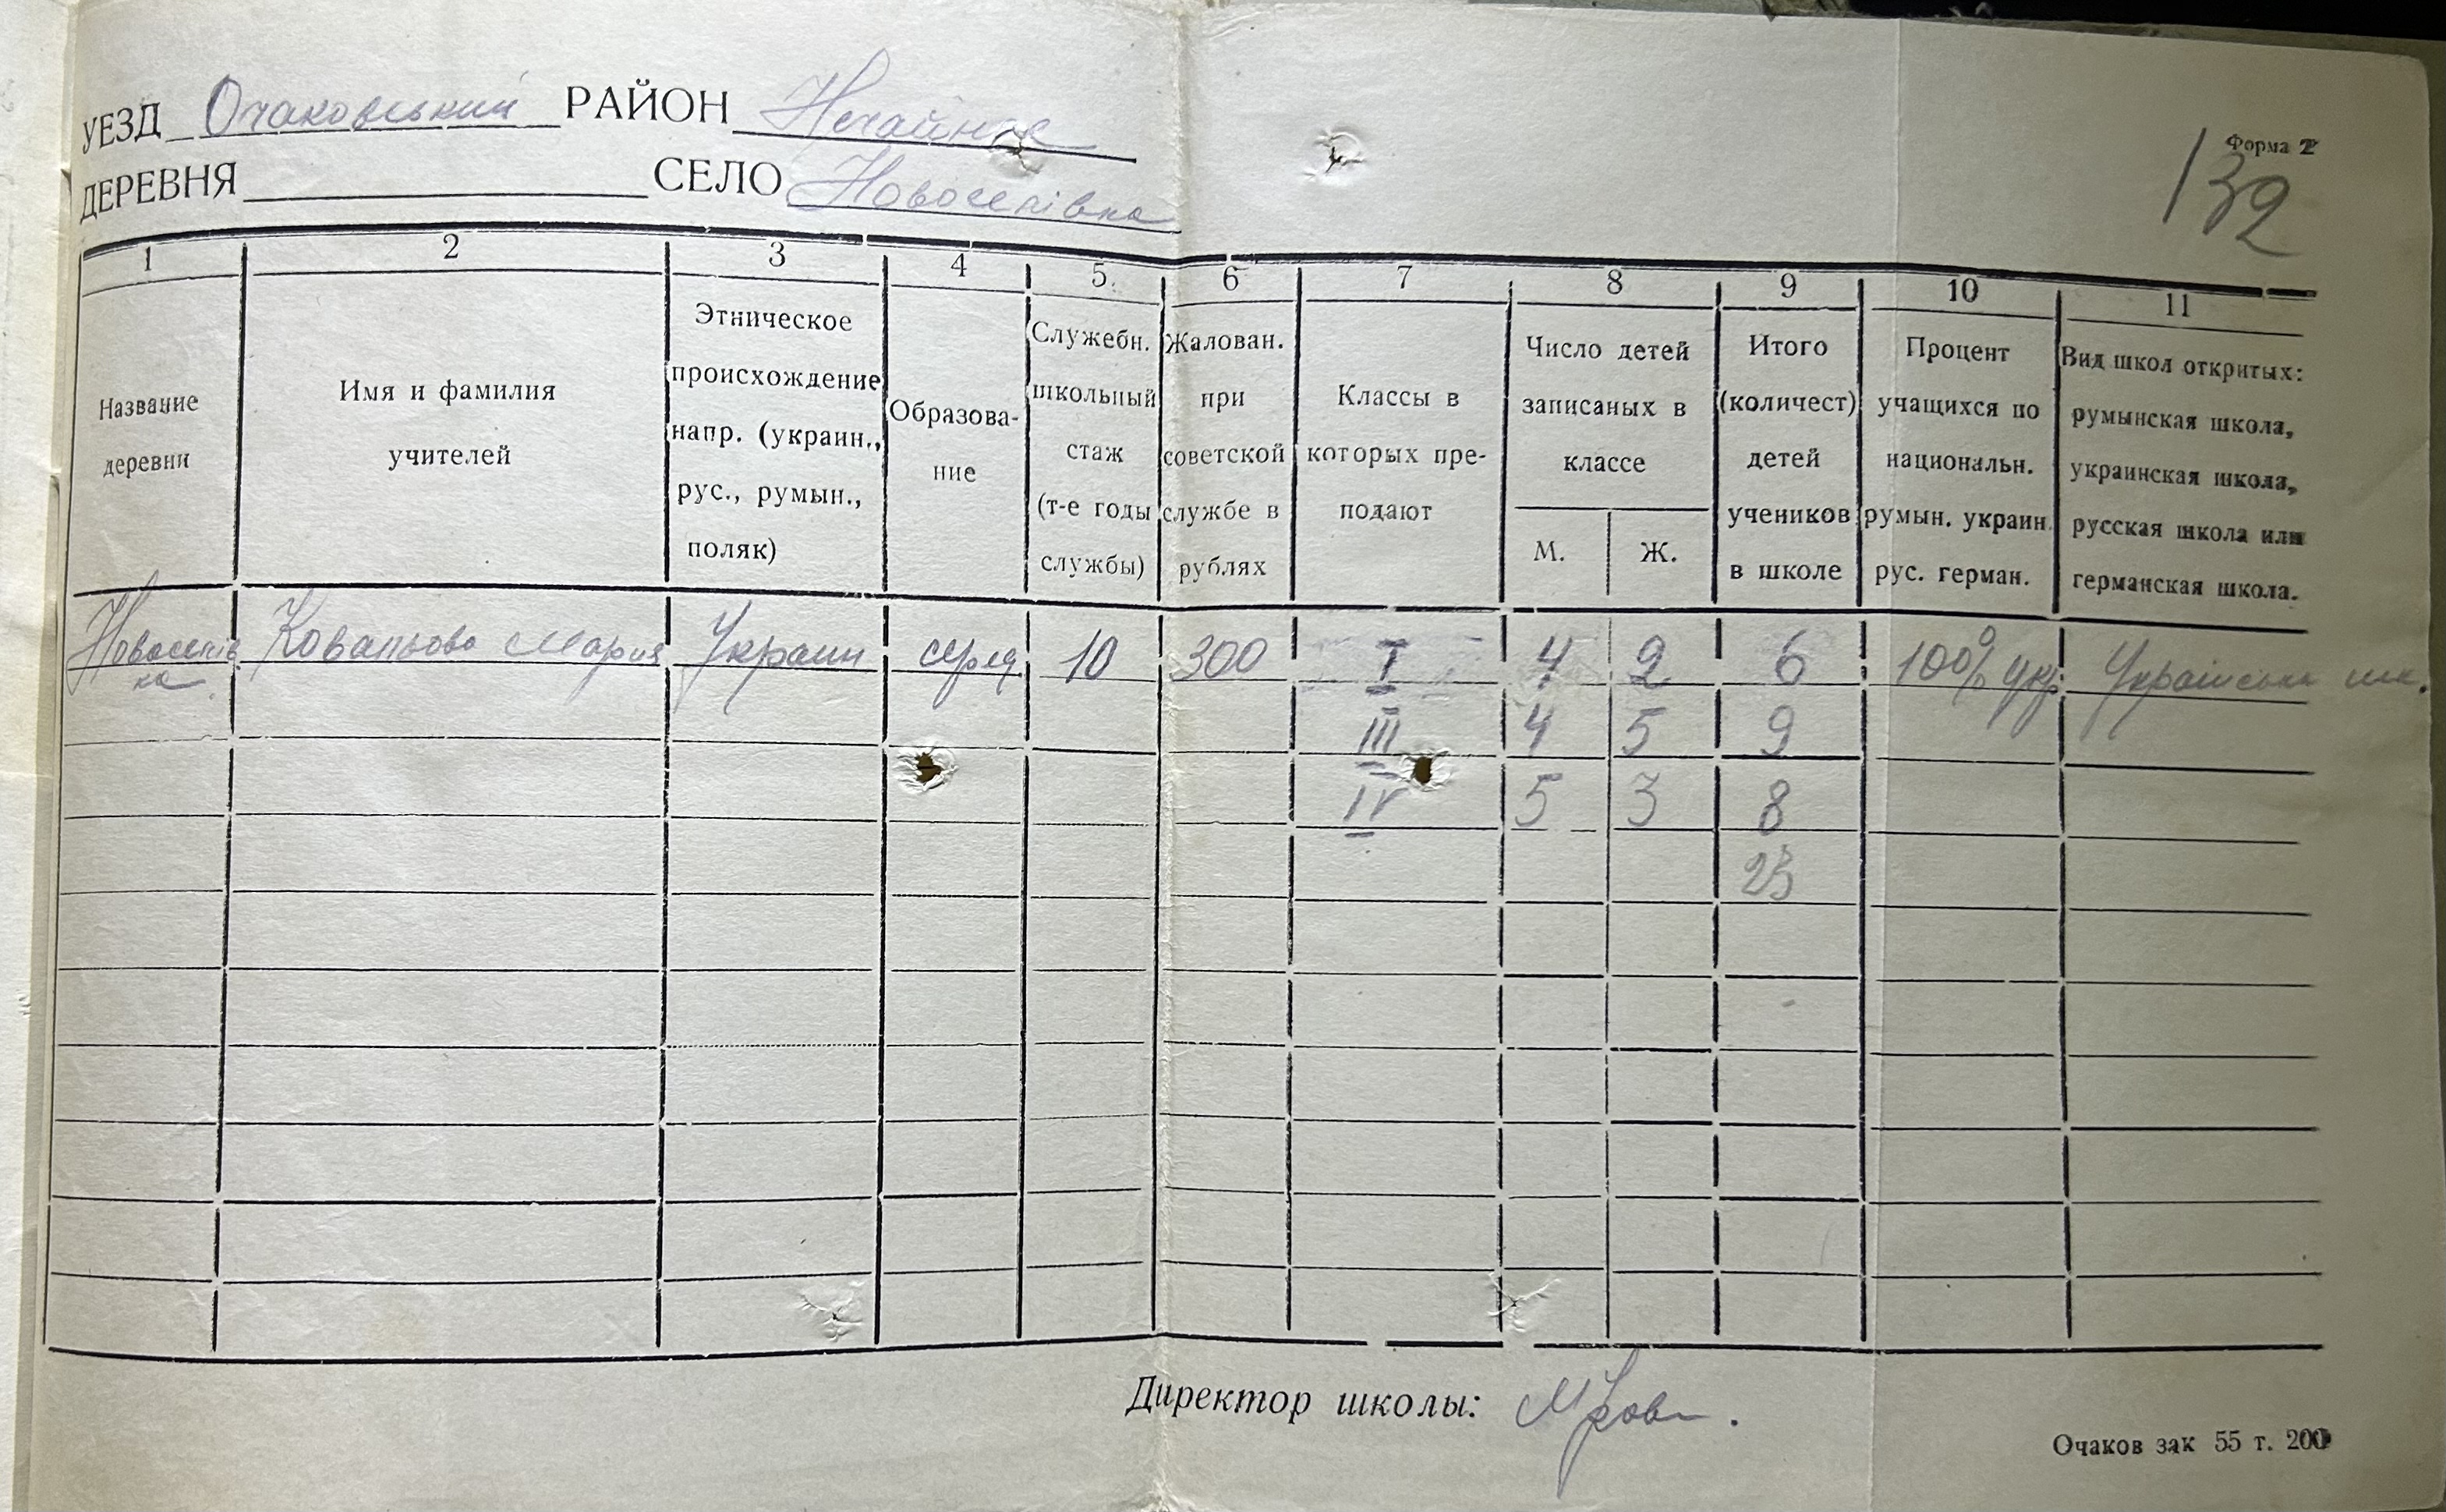 УЕЗД Очаковський РАЙОН Нечайное
Форма 2
132
ДЕРЕВНЯ СЕЛО Новоселівка
1 2 3 4 5. 6 7 8 9 10 11
Название деревни
Имя и фамилия учителей
Этническое происхождение напр. (украин., рус., румын., поляк)
Образова-ние
Служебн. школьный стаж (т-е годы службы)
Жалован. при советской службе в рублях
Классы в которых пре-подают
Число детей записаных в классе
М. Ж.
Итого (количест) детей учеников в школе
Процент учащихся по национальн. румын. украин. рус. герман.
Вид школ откритых: румынская школа, украинская школа, русская школа или германская школа.
Новоселівка Ковальова Мария Украин серед 10 300 I 4 2 6 100% укр. Українська шк.
III 4 5 9
IV 5 3 8
23
Директор школы:
Очаков зак 55 т. 200